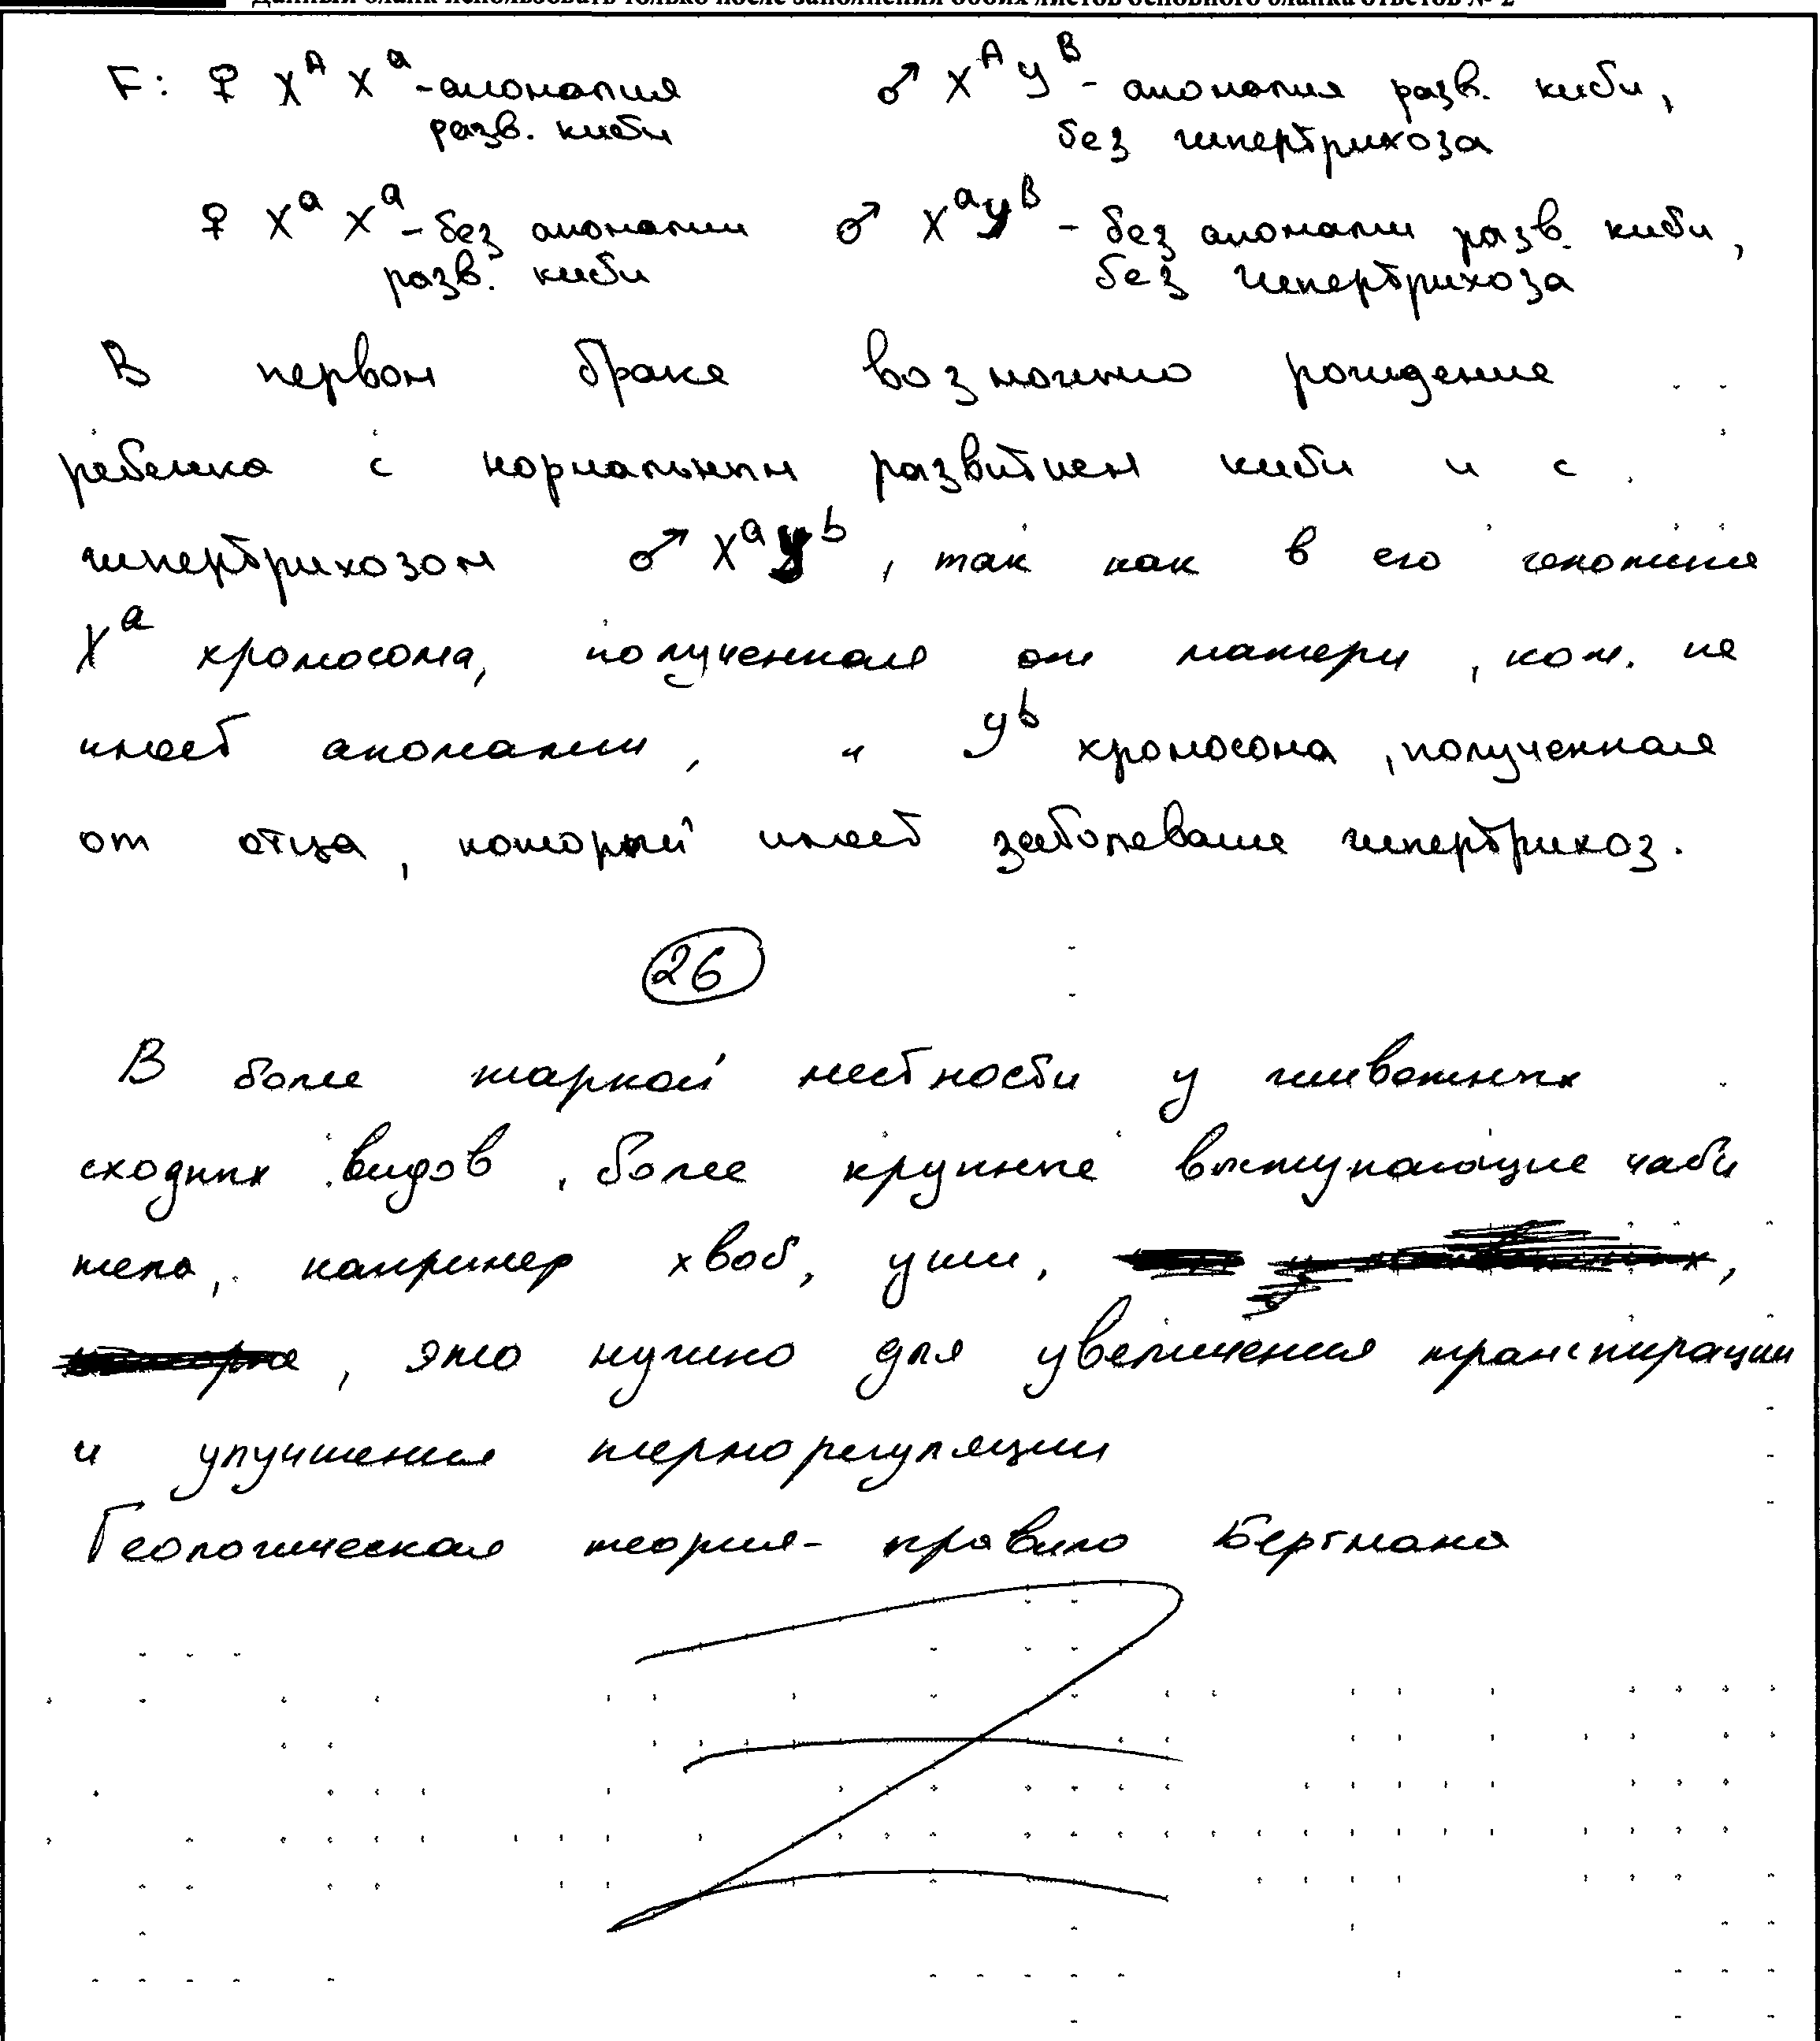 Данный бланк использовать только после заполнения обоих листов основного бланка ответов № 2
F: ♀ X^A X^a - аномалия ♂ X^A У^B - аномалия разв. кисти,
разв. кисти без гипертрихоза
♀ X^a X^a - без аномалии ♂ X^a У^B - без аномалии разв. кисти,
разв. кисти без гипертрихоза
В первом браке возможно рождение
ребенка с нормальным развитием кисти и с
гипертрихозом ♂ X^a У^b, так как в его генотипе
X^a хромосома, полученная от матери, кот. не
имеет аномалии, и У^b хромосома, полученная
от отца, который имеет заболевание гипертрихоз.
26
В более жаркой местности у животных
сходных видов, более крупные выступающие части
тела, например хвост, уши,
, это нужно для увеличения транспирации
и улучшения терморегуляции
Геологическая теория - правило Бергмана